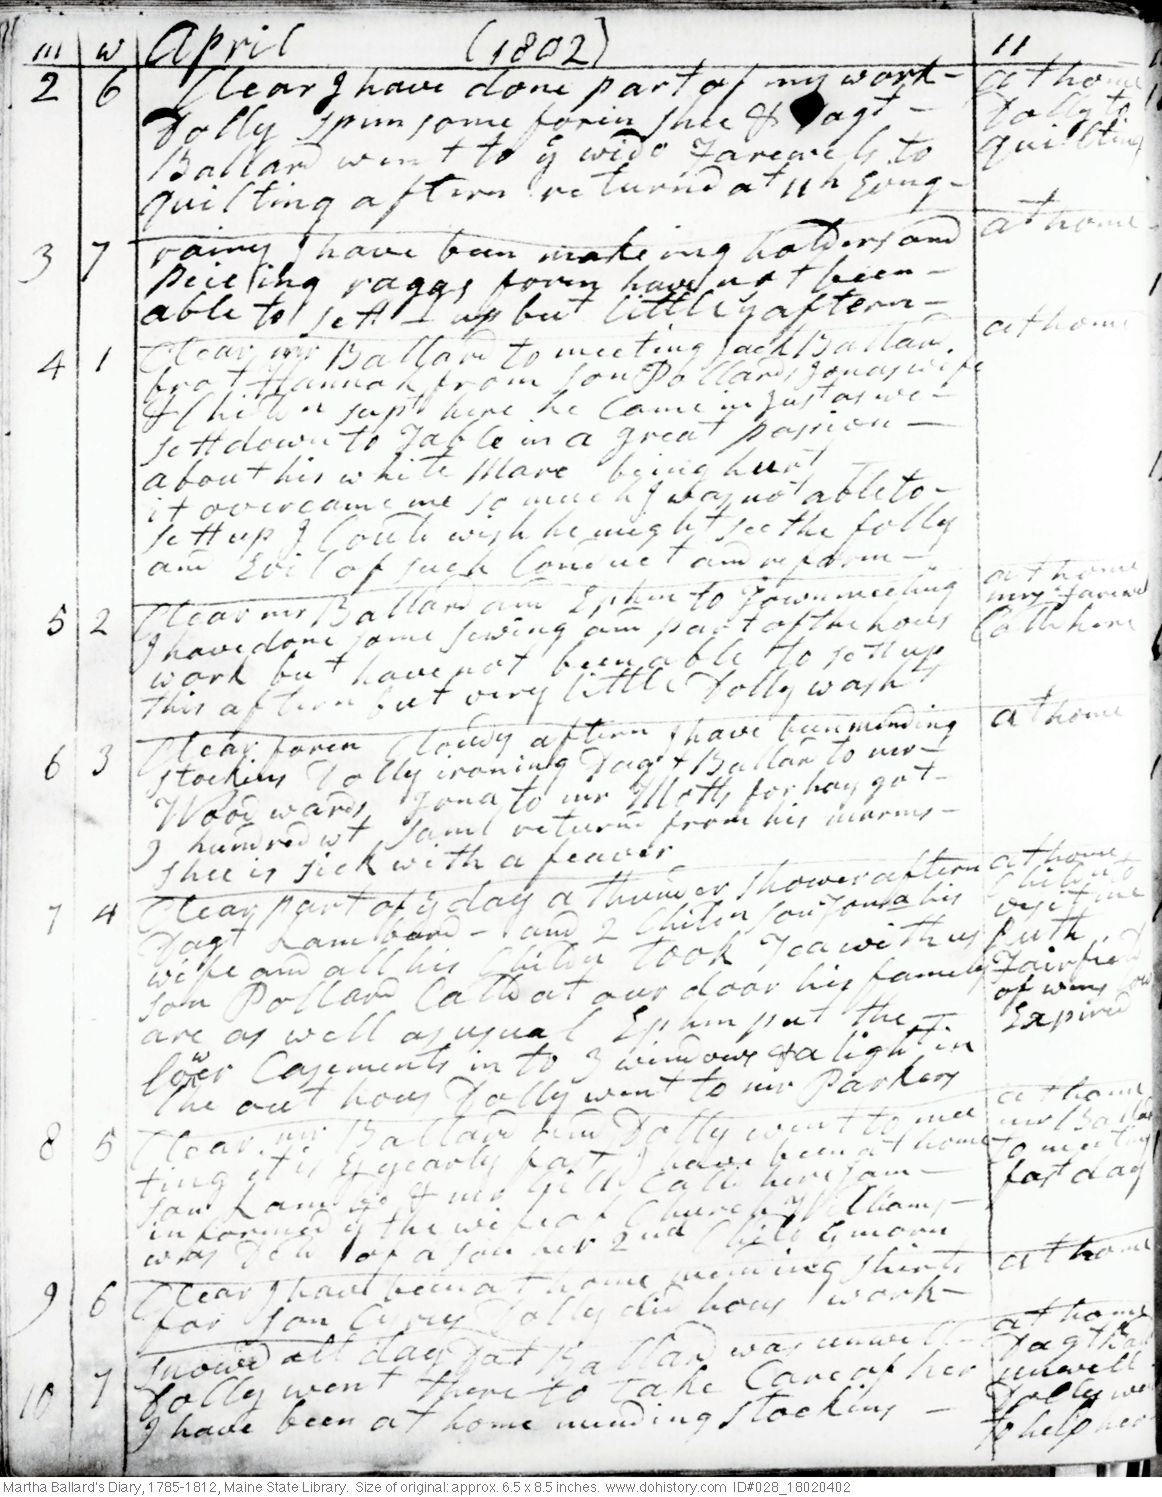 m w April (1802) 11
2 6 Clear I have done part of my work at home
Dolly spun some foren shee & Dagt Dolly to
Ballard went to ye wido Farewels to quilting
quilting aftern returnd at 11 h Evng
3 7 rainy I have been makeing holders and at home
peiceing raggs foren have not been
able to sett up but little ys aftern
4 1 Clear mr Ballard to meeting Jack Ballard at home
brot Hannah from son Pollards Jonas wife
& Childn supt here he Came in just as we
sett down to Table in a great passion
about his white Mare being hurt
it overcame me so much I was not able to
sett up I Could wish he might see the folly
and Evil of such Conduct and reform
5 2 Clear mr Ballard and Ephm to Town meeting at home
I have done some sewing and part of the hous mrs Farewel
work but have not been able to sett up Calld here
this aftern but very little Dolly washt
6 3 Clear foren Cloudy aftern I have been mending at home
stockins Dolly ironing Dagt Ballard to mr
Woodwards Jona to mr Motts for hay got
3 hundred wt Saml returnd from his marms
shee is sick with a feaver
7 4 Clear part of ye day a thunder shower aftern at home
Dagt Lambard and 2 Childn son Jona his Childn to
wife and all his Childn took Tea with us visit me
son Pollard Calld at our door his family Ruth
are as well as usual Ephm put the Fairfield
lower Casements in to 3 windows & a light in of wins low
the out hous Dolly went to mr Parkers Expired
8 5 Clear mr Ballard and Dolly went to mee at home
ting it is ye yearly fast I have been at home mr Ballard
son Lambd & mr Gill Calld here I am to meeting
informed yt the wife of Church Williams fast day
was Delv of a son her 2nd Child ys morn
9 6 Clear I have been at home mending shirts at home
for son Cyrus Dolly did hous work
10 7 snowd all day Dat Ballard was unwell at home
Dolly went there to take Care of her Dagt Bal
I have been at home mending stockins unwell
Dolly went
to help her
Martha Ballard's Diary, 1785-1812, Maine State Library. Size of original: approx. 6.5 x 8.5 inches. www.dohistory.com ID#028_18020402